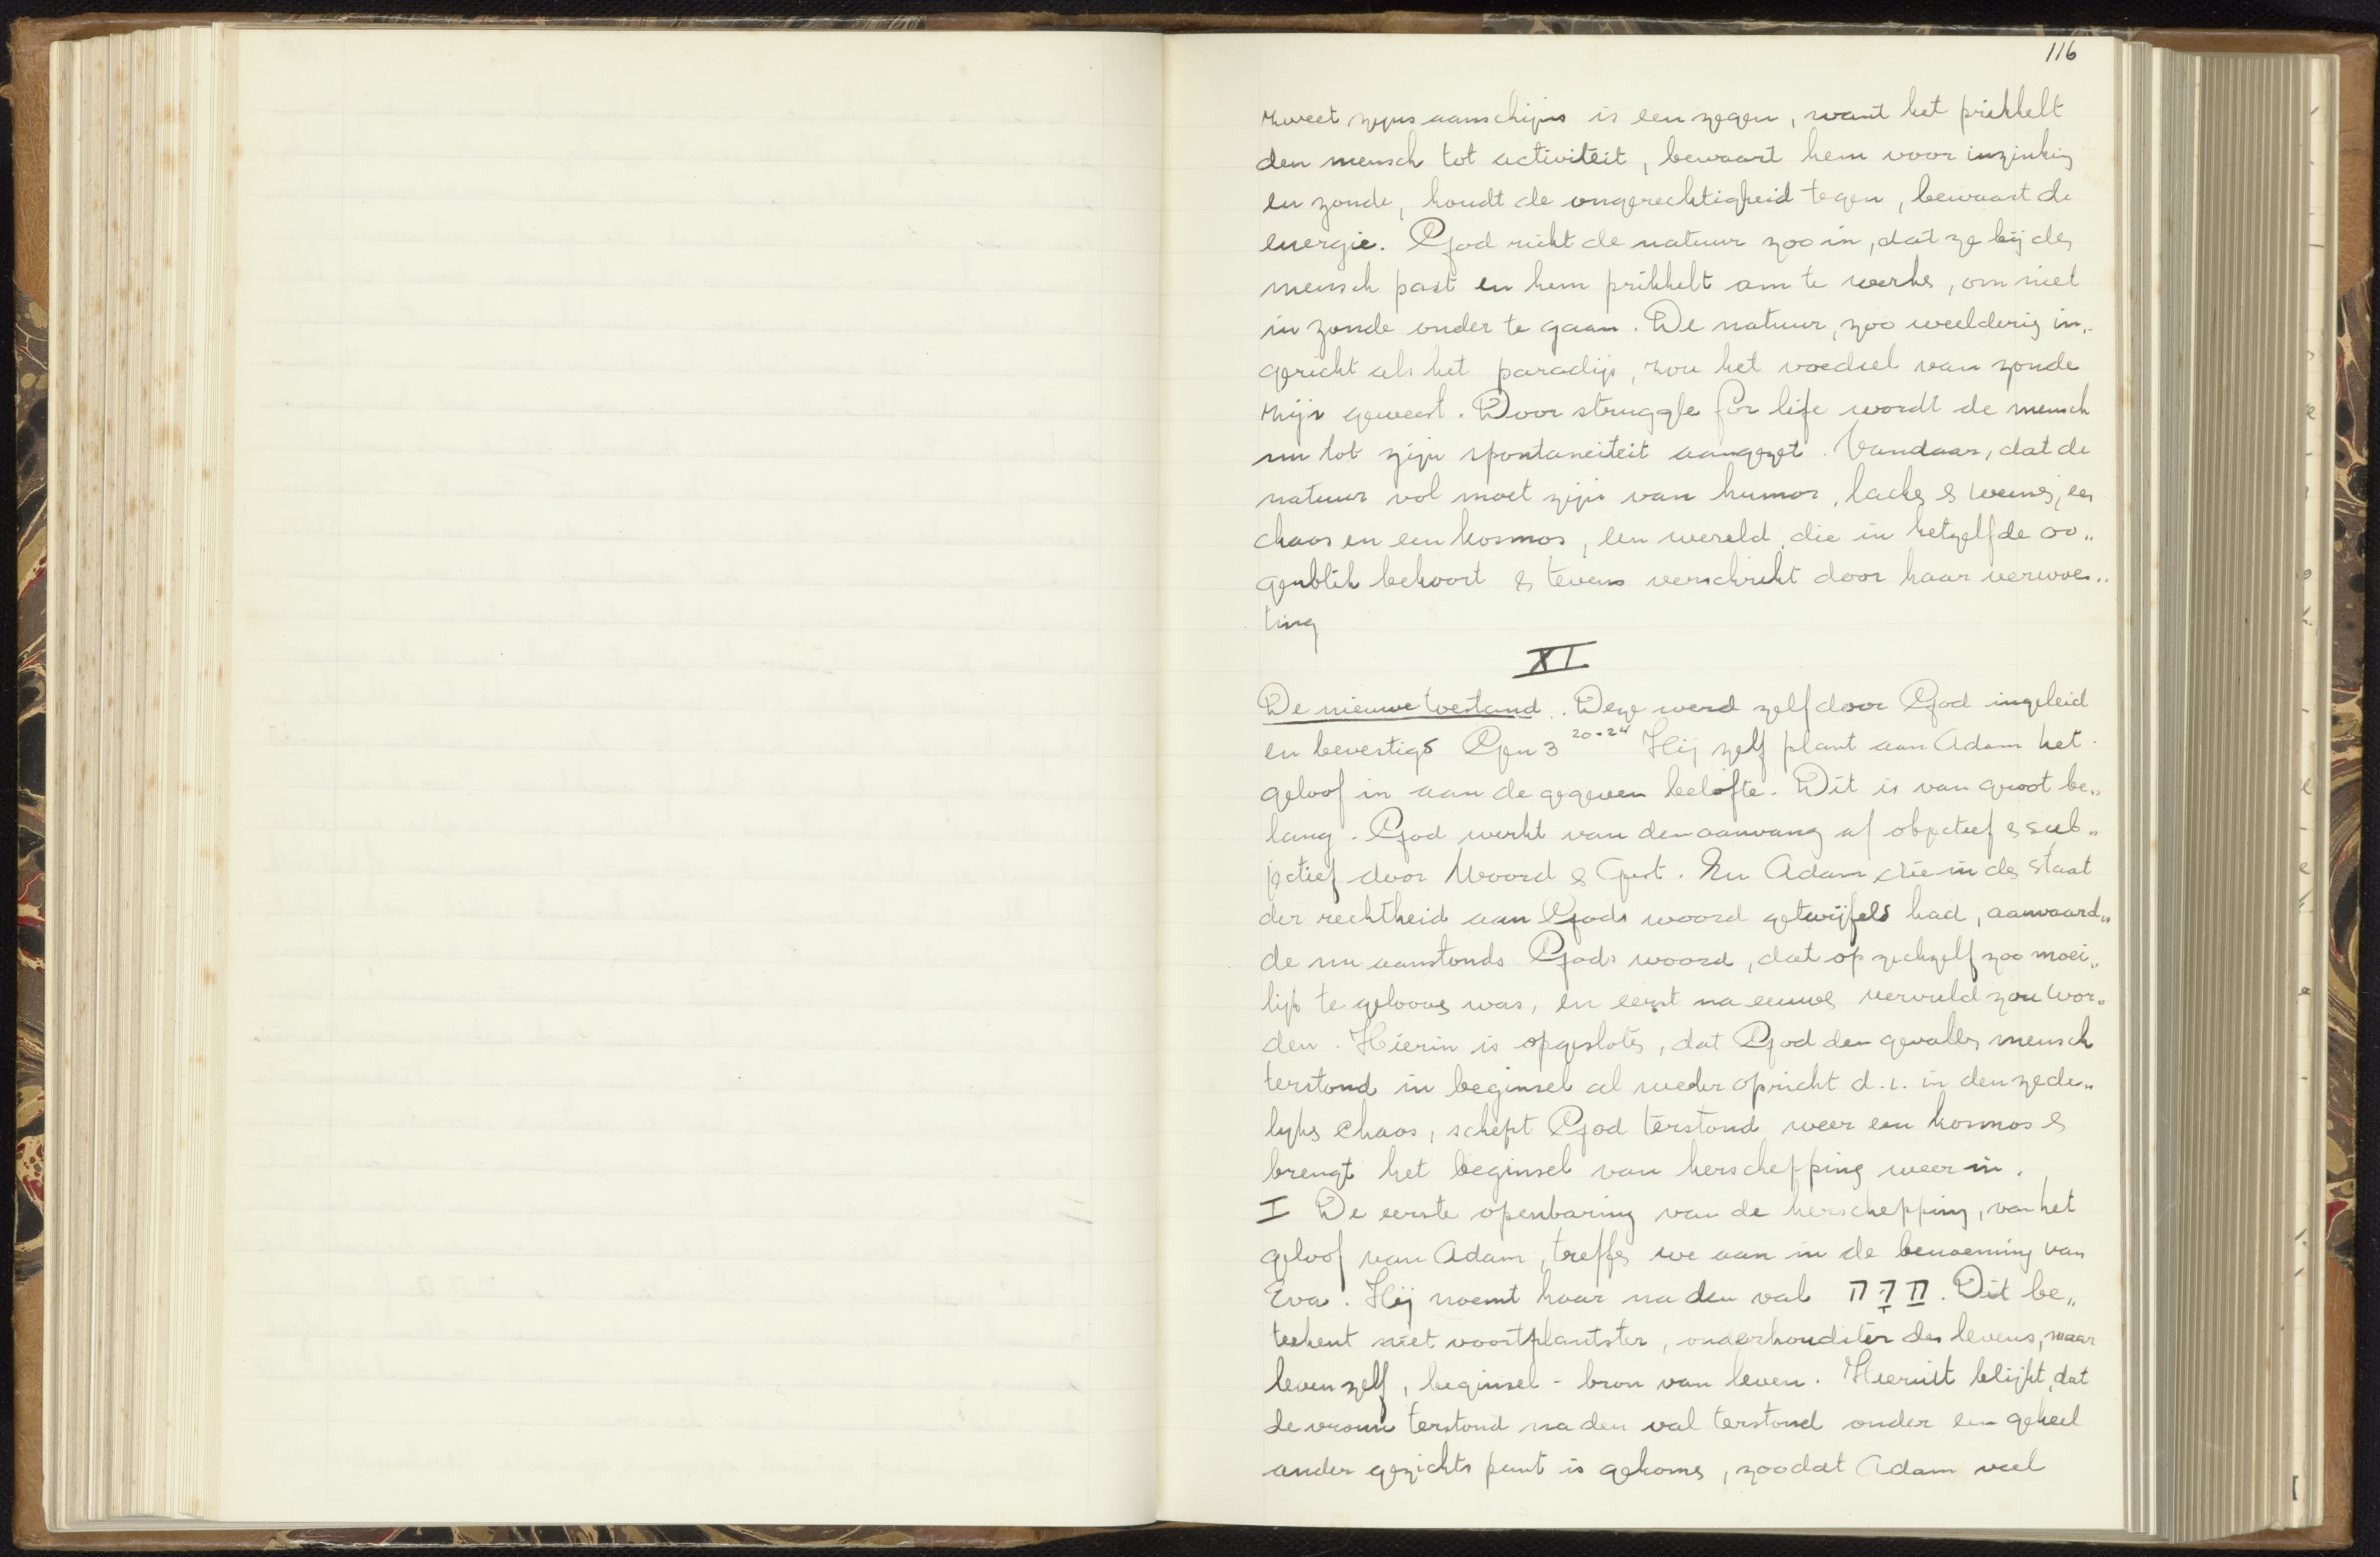 116
zweet zijns aanschijns is een zegen, want het prikkelt
den mensch tot activiteit, bewaart hem voor inzinking
en zonde, houdt de ongerechtigheid tegen, bewaart de
energie. God richt de natuur zoo in, dat ze bij den
mensch past en hem prikkelt om te werken, om niet
in zonde onder te gaan. De natuur, zoo weelderig in„
gericht als het paradijs, zou het voedsel van zonde
zijn geweest. Door struggle for life wordt de mensch
nu tot zijn spontaneiteit aangezet. Vandaar, dat de
natuur vol moet zijn van humor, lachen & weenen, een
chaos en een kosmos, een wereld, die in hetzelfde oo„
genblik bekoort & tevens verschrikt door haar verwoes„
ting
XI
De nieuwe toestand. Deze werd zelf door God ingeleid
en bevestigd Gen 3 20-24 Hij zelf plant aan Adam het
geloof in aan de gegeven belofte. Dit is van groot be„
lang. God werkt van den aanvang af objectief & sub„
jectief door Woord & Geest. En Adam die in den staat
der rechtheid aan Gods woord getwijfeld had, aanvaard„
de nu aanstonds Gods woord, dat op zichzelf zoo moei„
lijk te gelooven was, en eerst na eeuwen vervuld zou wor„
den. Hierin is opgesloten, dat God den gevallen mensch
terstond in beginsel al weder opricht d.i. in den zede„
lijken chaos, schept God terstond weer een kosmos &
brengt het beginsel van herschepping weer in.
I De eerste openbaring van de herschepping, van het
geloof van Adam, treffen we aan in de benoeming van
Eva. Hij noemt haar na den val חַוָּה. Dit be„
teekent niet voortplantster, onderhoudster des levens, maar
leven zelf, beginsel - bron van leven. Hieruit blijkt, dat
de vrouw terstond na den val terstond onder een geheel
ander gezichts punt is gekomen, zoodat Adam veel